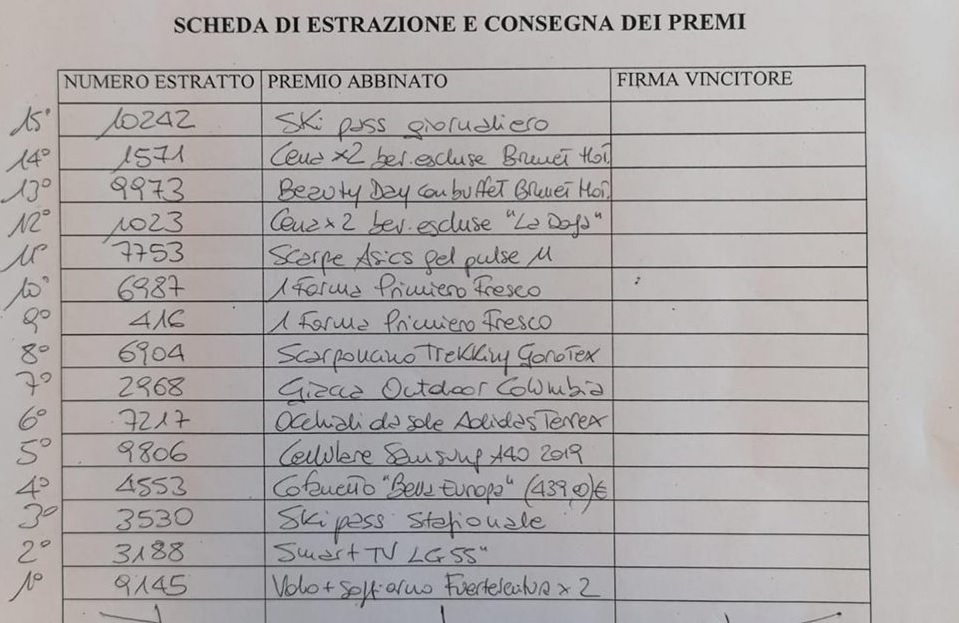 SCHEDA DI ESTRAZIONE E CONSEGNA DEI PREMI
NUMERO ESTRATTO PREMIO ABBINATO FIRMA VINCITORE
15° 10242 Ski pass giornaliero
14° 1571 Cena x2 bev. escluse Brunet Hot.
13° 9973 Beauty Day con buffet Brunet Hot.
12° 1023 Cena x 2 bev. escluse "La Doga"
11° 7753 Scarpe Asics gel pulse 11
10° 6987 1 Forma Primiero Fresco
9° 416 1 Forma Primiero Fresco
8° 6904 Scarponcino Trekking Gorotex
7° 2968 Giacca Outdoor Columbia
6° 7217 Occhiali da sole Adidas Terrex
5° 9806 Cellulare Samsung A40 2019
4° 4553 Cofanetto "Bella Europa" (439,00)€
3° 3530 Ski pass Stagionale
2° 3188 Smart TV LG 55"
1° 9145 Volo + soggiorno Fuerteventura x 2